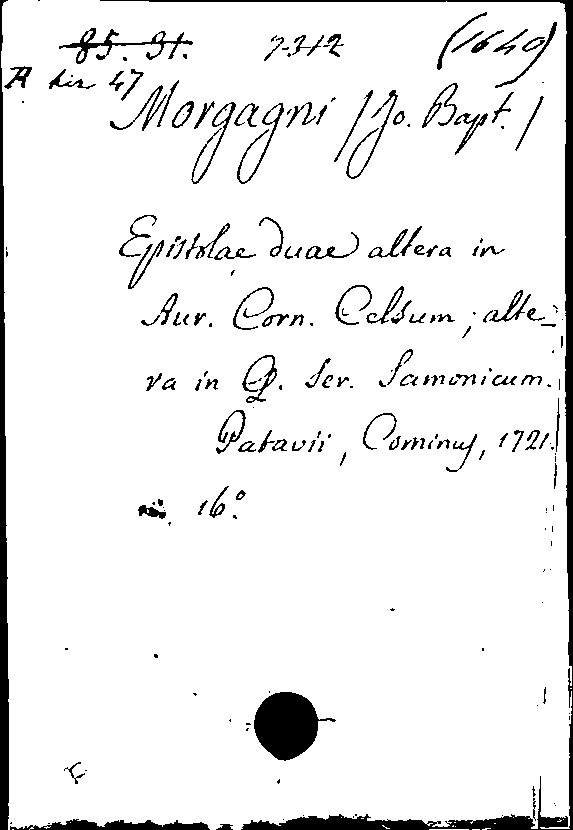 85. 31. 7312 (1640)
A bis 47
Morgagni /Jo. Bapt./
Epistolae duae altera in
Aur. Corn. Celsum; alte-
ra in Q. Ser. Samonicum.
Patavii, Cominus, 1721.
16°.